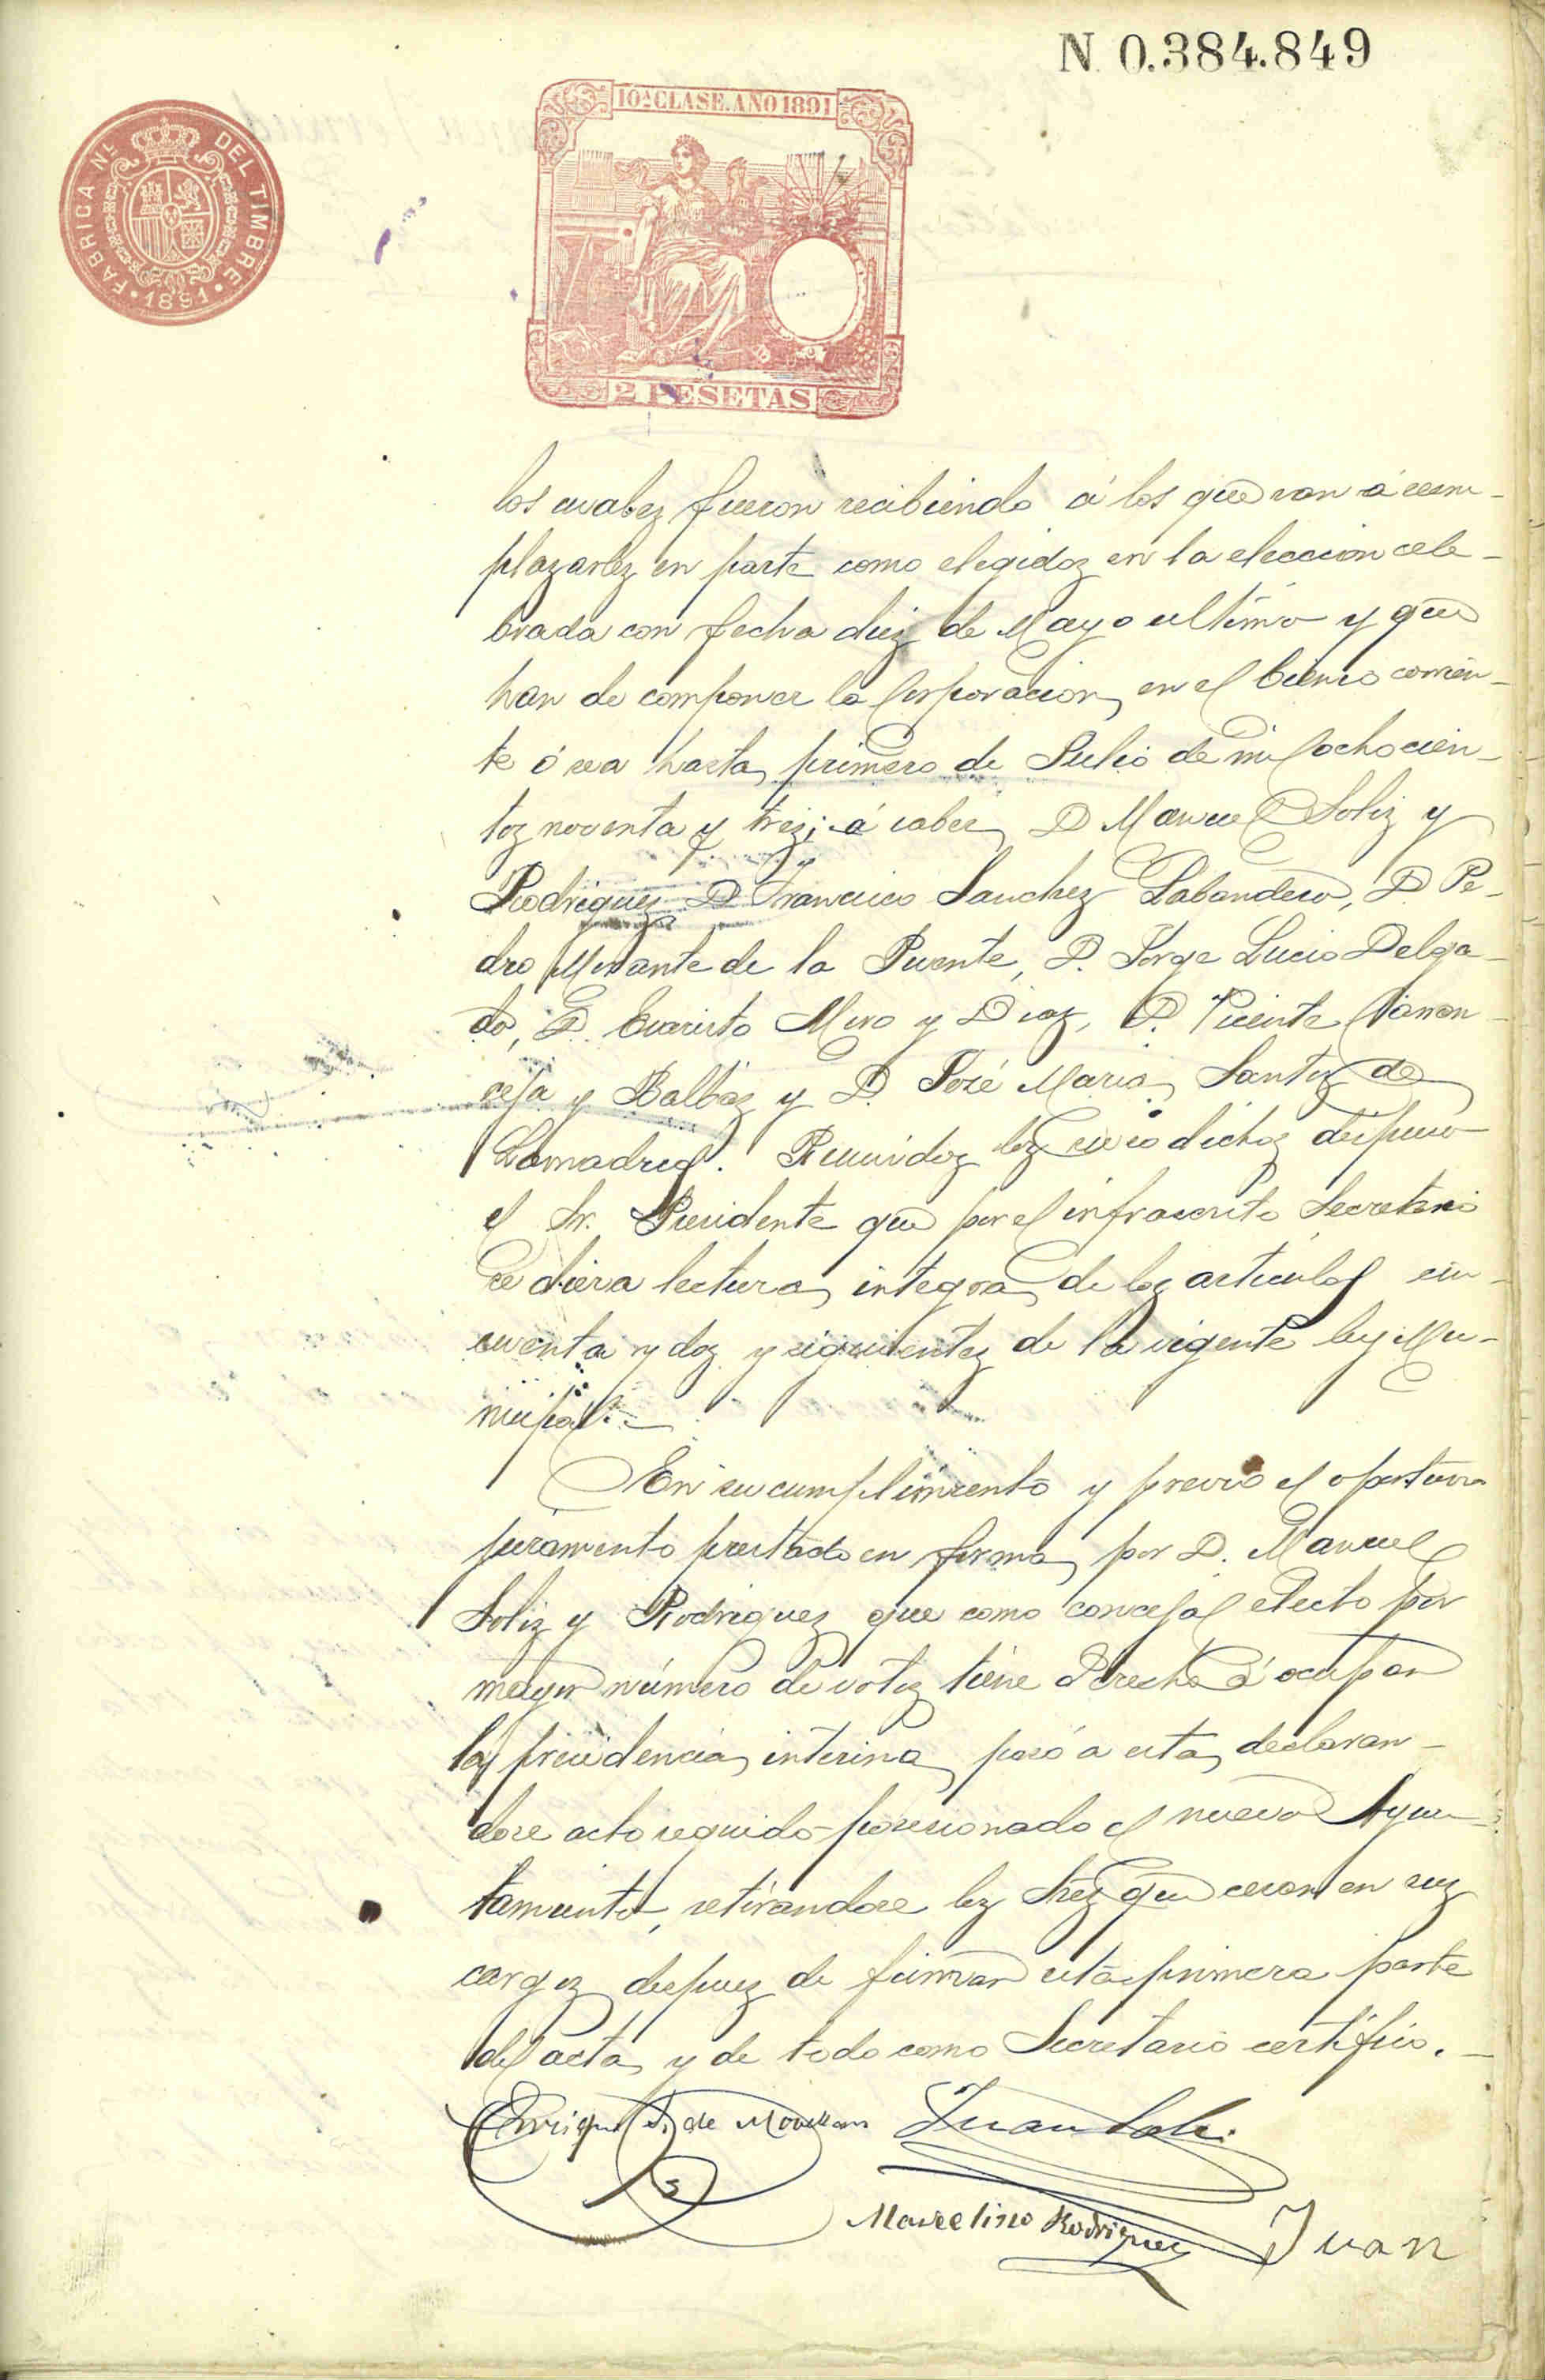 N. 0.384.849
10ª CLASE. AÑO 1891
FABRICA Nˡ DEL TIMBRE
1891
2 PESETAS
los cuales fueron recibiendo á los que van á reem-
plazarles en parte como elegidos en la eleccion cele-
brada con fecha diez de Mayo ultimo y que
han de componer la Corporacion en el bienio corrien-
te ó sea hasta primero de Julio de mil ochocien-
tos noventa y tres; á saber D Manuel Soliz y
Rodriguez D Francisco Sanchez Labandero, D. Pe-
dro de la Puente, D. Jorge Lucio Delga-
do, D. Evaristo y Diaz, D. Vicente
y Balbás y D. José Maria Santos de
Lamadrid. Reunidos los susodichos dispuso
el Sr. Presidente que por el infrascrito Secretario
se diera lectura integra de los articulos cin-
cuenta y dos y siguientes de la vigente ley Mu-
nicipal.
En su cumplimiento y previo el oportuno
juramento prestado en forma por D. Manuel
Soliz y Rodriguez que como concejal electo por
mayor número de votos tiene derecho á ocupar
la presidencia interina, pasó a esta declaran-
dose acto seguido posesionado el nuevo Ayun-
tamiento, retirandose los tres que cesan en sus
cargos despues de firmar esta primera parte
del acta y de todo como Secretario certifico.
Enrique S. de Movellan Juan
Marcelino Rodriguez Juan